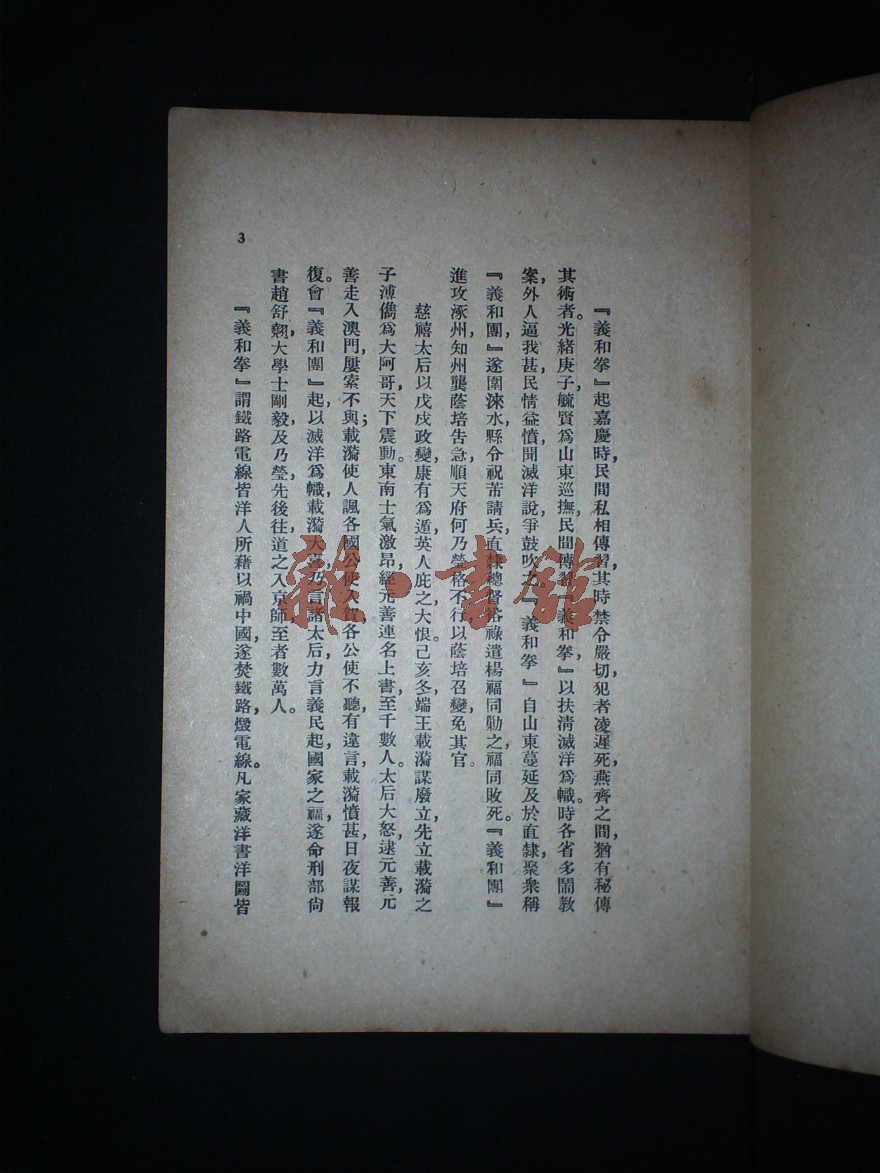 『義和拳』起嘉慶時，民間私相傳習，其時禁令嚴切，犯者凌遲死，燕齊之間，猶有秘傳
其術者。光緒庚子，毓賢爲山東巡撫，民間傳習『義和拳』以扶淸滅洋爲幟。時各省多鬧敎
案，外人逼我甚，民情益憤，聞滅洋說，爭鼓吹之。『義和拳』自山東蔓延及於直隸，聚衆稱
『義和團』，遂圍淶水，縣令祝芾請兵，直隸總督裕祿遣楊福同勦之，福同敗死。『義和團』
進攻涿州，知州龔蔭培告急，順天府何乃瑩格不行，以蔭培召變，免其官。
慈禧太后以戊戌政變，康有爲遁，英人庇之，大恨。己亥冬，端王載漪謀廢立，先立載漪之
子溥儁爲大阿哥，天下震動。東南士氣激昂，經元善連名上書，至千數人。太后大怒，逮元善，元
善走入澳門，屢索不與；載漪使人諷各國公使入賀，各公使不聽，有違言，載漪憤甚，日夜謀報
復。會『義和團』起，以滅洋爲幟，載漪大喜，乃言諸太后，力言義民起，國家之福，遂命刑部尙
書趙舒翹，大學士剛毅，及乃瑩，先後往，道之入京師，至者數萬人。
『義和拳』謂鐵路電線，皆洋人所藉以禍中國，遂焚鐵路，燬電線。凡家藏洋書洋圖皆
3
雜·書館